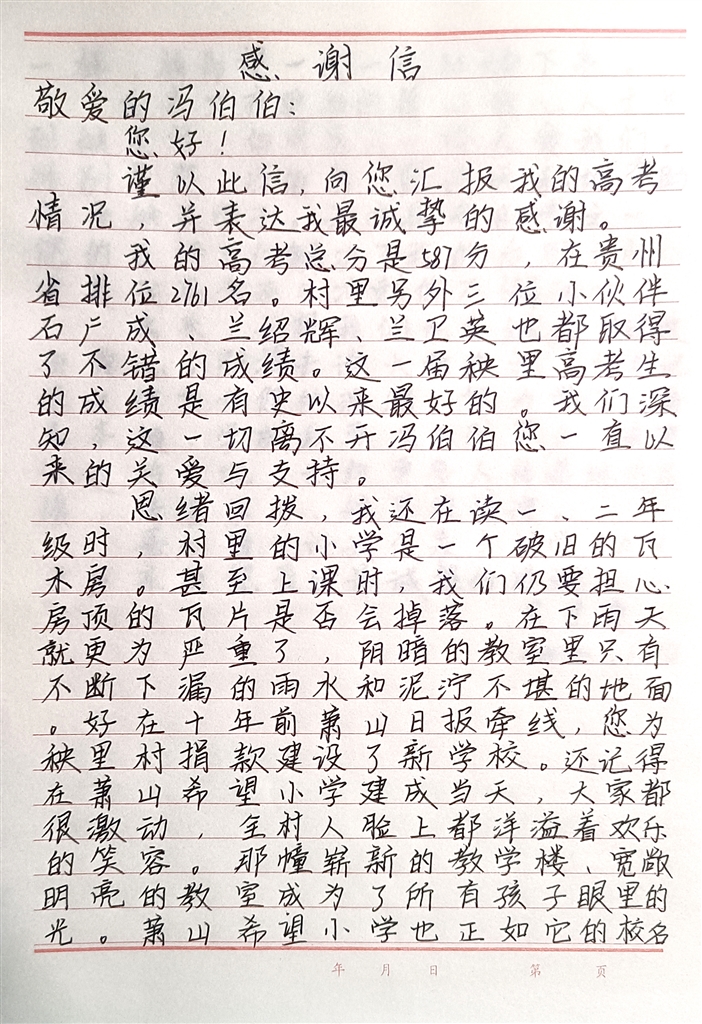 感谢信
敬爱的冯伯伯：
您好！
谨以此信，向您汇报我的高考
情况，并表达我最诚挚的感谢。
我的高考总分是587分，在贵州
省排位2761名。村里另外三位小伙伴
石广成、兰绍辉、兰卫英也都取得
了不错的成绩。这一届秧里高考生
的成绩是有史以来最好的。我们深
知，这一切离不开冯伯伯您一直以
来的关爱与支持。
思绪回拨，我还在读一、二年
级时，村里的小学是一个破旧的瓦
木房。甚至上课时，我们仍要担心
房顶的瓦片是否会掉落。在下雨天
就更为严重了，阴暗的教室里只有
不断下漏的雨水和泥泞不堪的地面
。好在十年前萧山日报牵线，您为
秧里村捐款建设了新学校。还记得
在萧山希望小学建成当天，大家都
很激动，全村人脸上都洋溢着欢乐
的笑容。那幢崭新的教学楼、宽敞
明亮的教室成为了所有孩子眼里的
光。萧山希望小学也正如它的校名
年 月 日 第 页